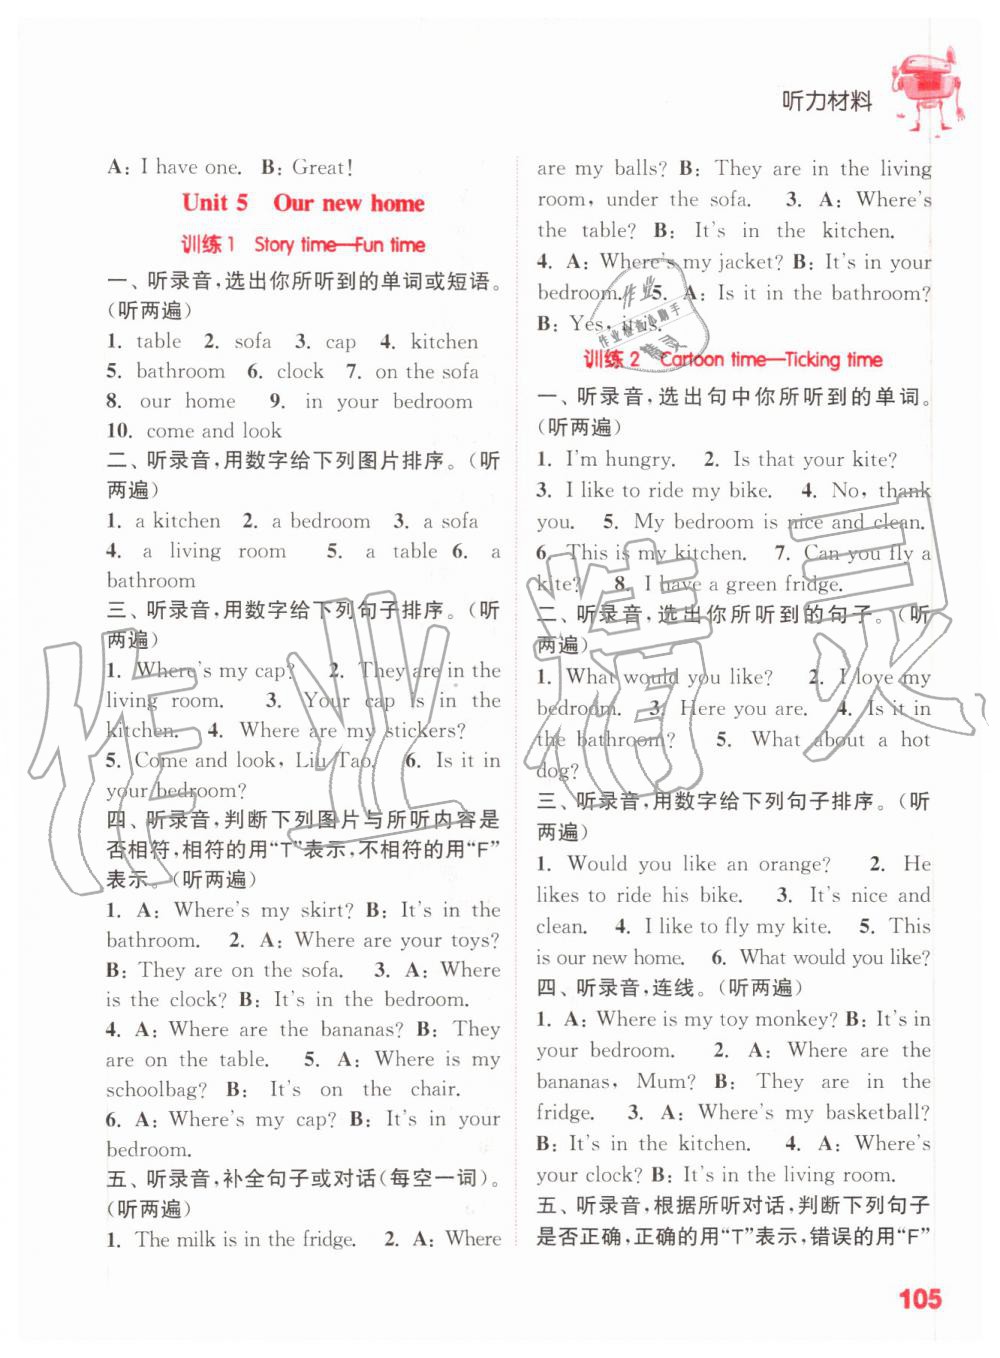 听力材料
A: I have one.  B: Great!
Unit 5  Our new home
训练1  Story time—Fun time
一、听录音,选出你所听到的单词或短语。
(听两遍)
1. table  2. sofa  3. cap  4. kitchen
5. bathroom  6. clock  7. on the sofa
8. our home  9. in your bedroom
10. come and look
二、听录音,用数字给下列图片排序。(听
两遍)
1. a kitchen  2. a bedroom  3. a sofa
4. a living room  5. a table  6. a
bathroom
三、听录音,用数字给下列句子排序。(听
两遍)
1. Where's my cap?  2. They are in the
living room.  3. Your cap is in the
kitchen.  4. Where are my stickers?
5. Come and look, Liu Tao.  6. Is it in
your bedroom?
四、听录音,判断下列图片与所听内容是
否相符,相符的用“T”表示,不相符的用“F”
表示。(听两遍)
1. A: Where's my skirt? B: It's in the
bathroom.  2. A: Where are your toys?
B: They are on the sofa.  3. A: Where
is the clock? B: It's in the bedroom.
4. A: Where are the bananas? B: They
are on the table.  5. A: Where is my
schoolbag? B: It's on the chair.
6. A: Where's my cap? B: It's in your
bedroom.
五、听录音,补全句子或对话(每空一词)。
(听两遍)
1. The milk is in the fridge.  2. A: Where
are my balls? B: They are in the living
room, under the sofa.  3. A: Where's
the table? B: It's in the kitchen.
4. A: Where's my jacket? B: It's in your
bedroom.  5. A: Is it in the bathroom?
B: Yes, it is.
训练2  Cartoon time—Ticking time
一、听录音,选出句中你所听到的单词。
(听两遍)
1. I'm hungry.  2. Is that your kite?
3. I like to ride my bike.  4. No, thank
you.  5. My bedroom is nice and clean.
6. This is my kitchen.  7. Can you fly a
kite?  8. I have a green fridge.
二、听录音,选出你所听到的句子。(听
两遍)
1. What would you like?  2. I love my
bedroom.  3. Here you are.  4. Is it in
the bathroom?  5. What about a hot
dog?
三、听录音,用数字给下列句子排序。(听
两遍)
1. Would you like an orange?  2. He
likes to ride his bike.  3. It's nice and
clean.  4. I like to fly my kite.  5. This
is our new home.  6. What would you like?
四、听录音,连线。(听两遍)
1. A: Where is my toy monkey? B: It's in
your bedroom.  2. A: Where are the
bananas, Mum? B: They are in the
fridge.  3. A: Where's my basketball?
B: It's in the kitchen.  4. A: Where's
your clock? B: It's in the living room.
五、听录音,根据所听对话,判断下列句子
是否正确,正确的用“T”表示,错误的用“F”
105
作业精灵
作业
作业检查小助手
精灵